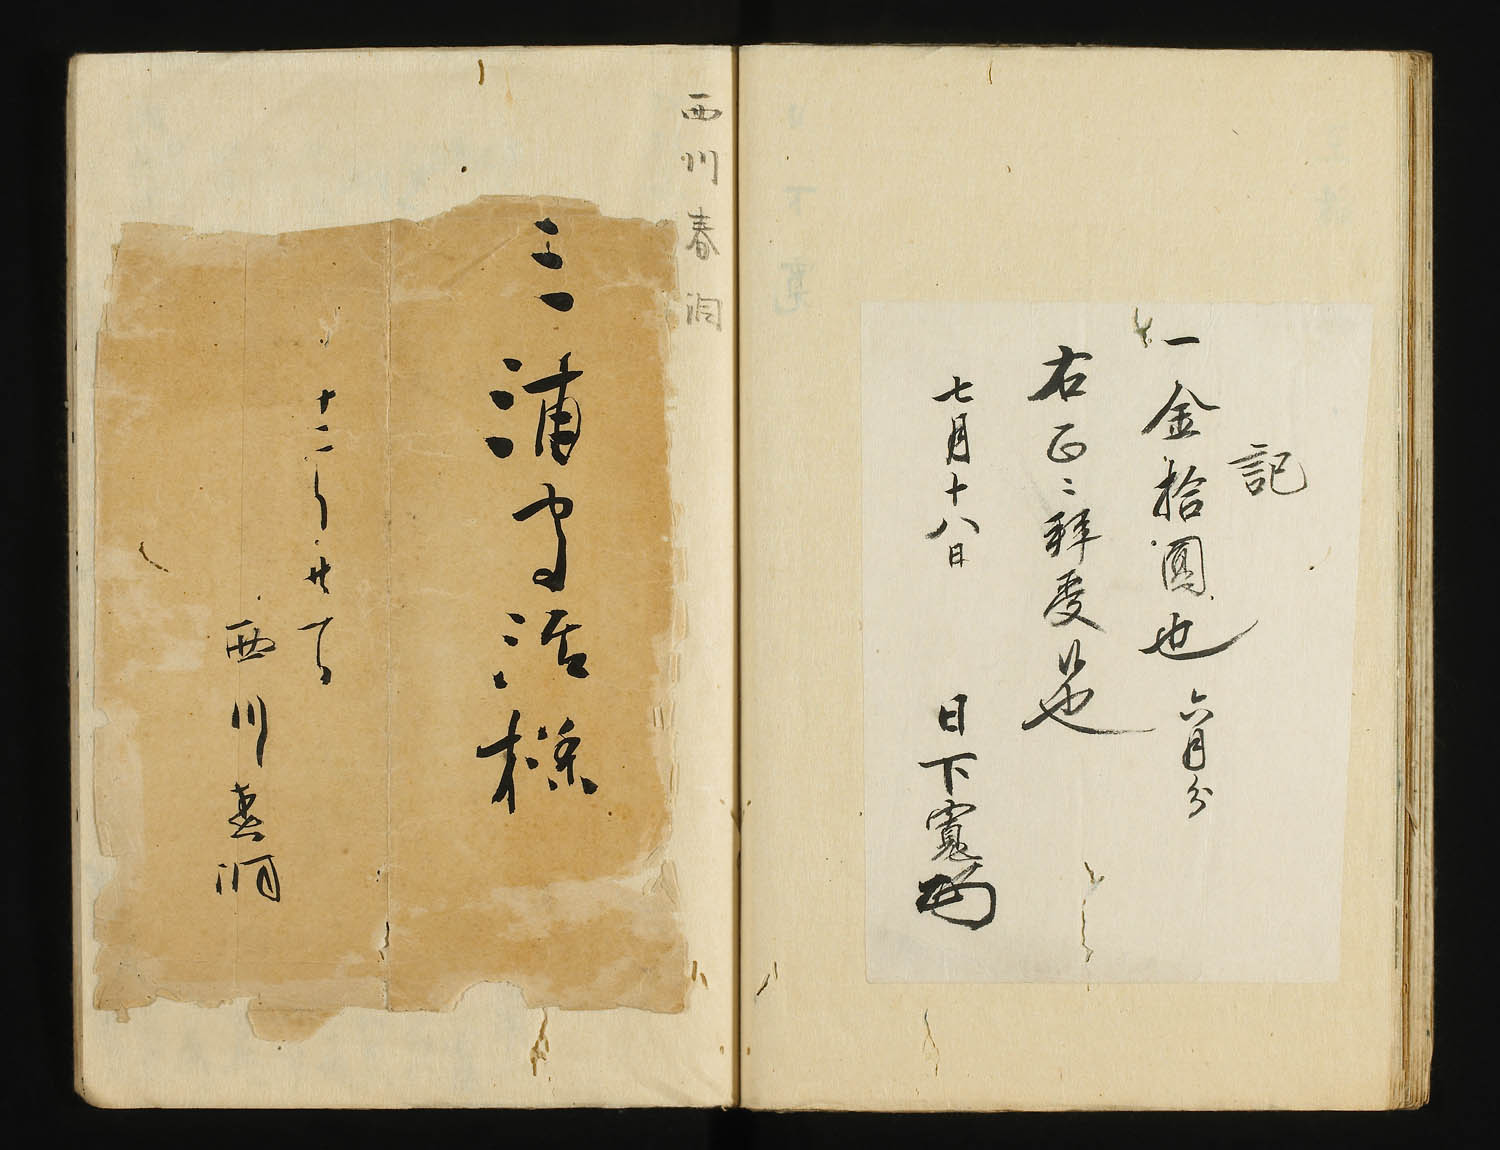 記
一金拾圓也 六月分
右正ニ拝受候也
七月十八日
日下寛
西川春洞
三浦守治様
十二月廿一日
西川春洞